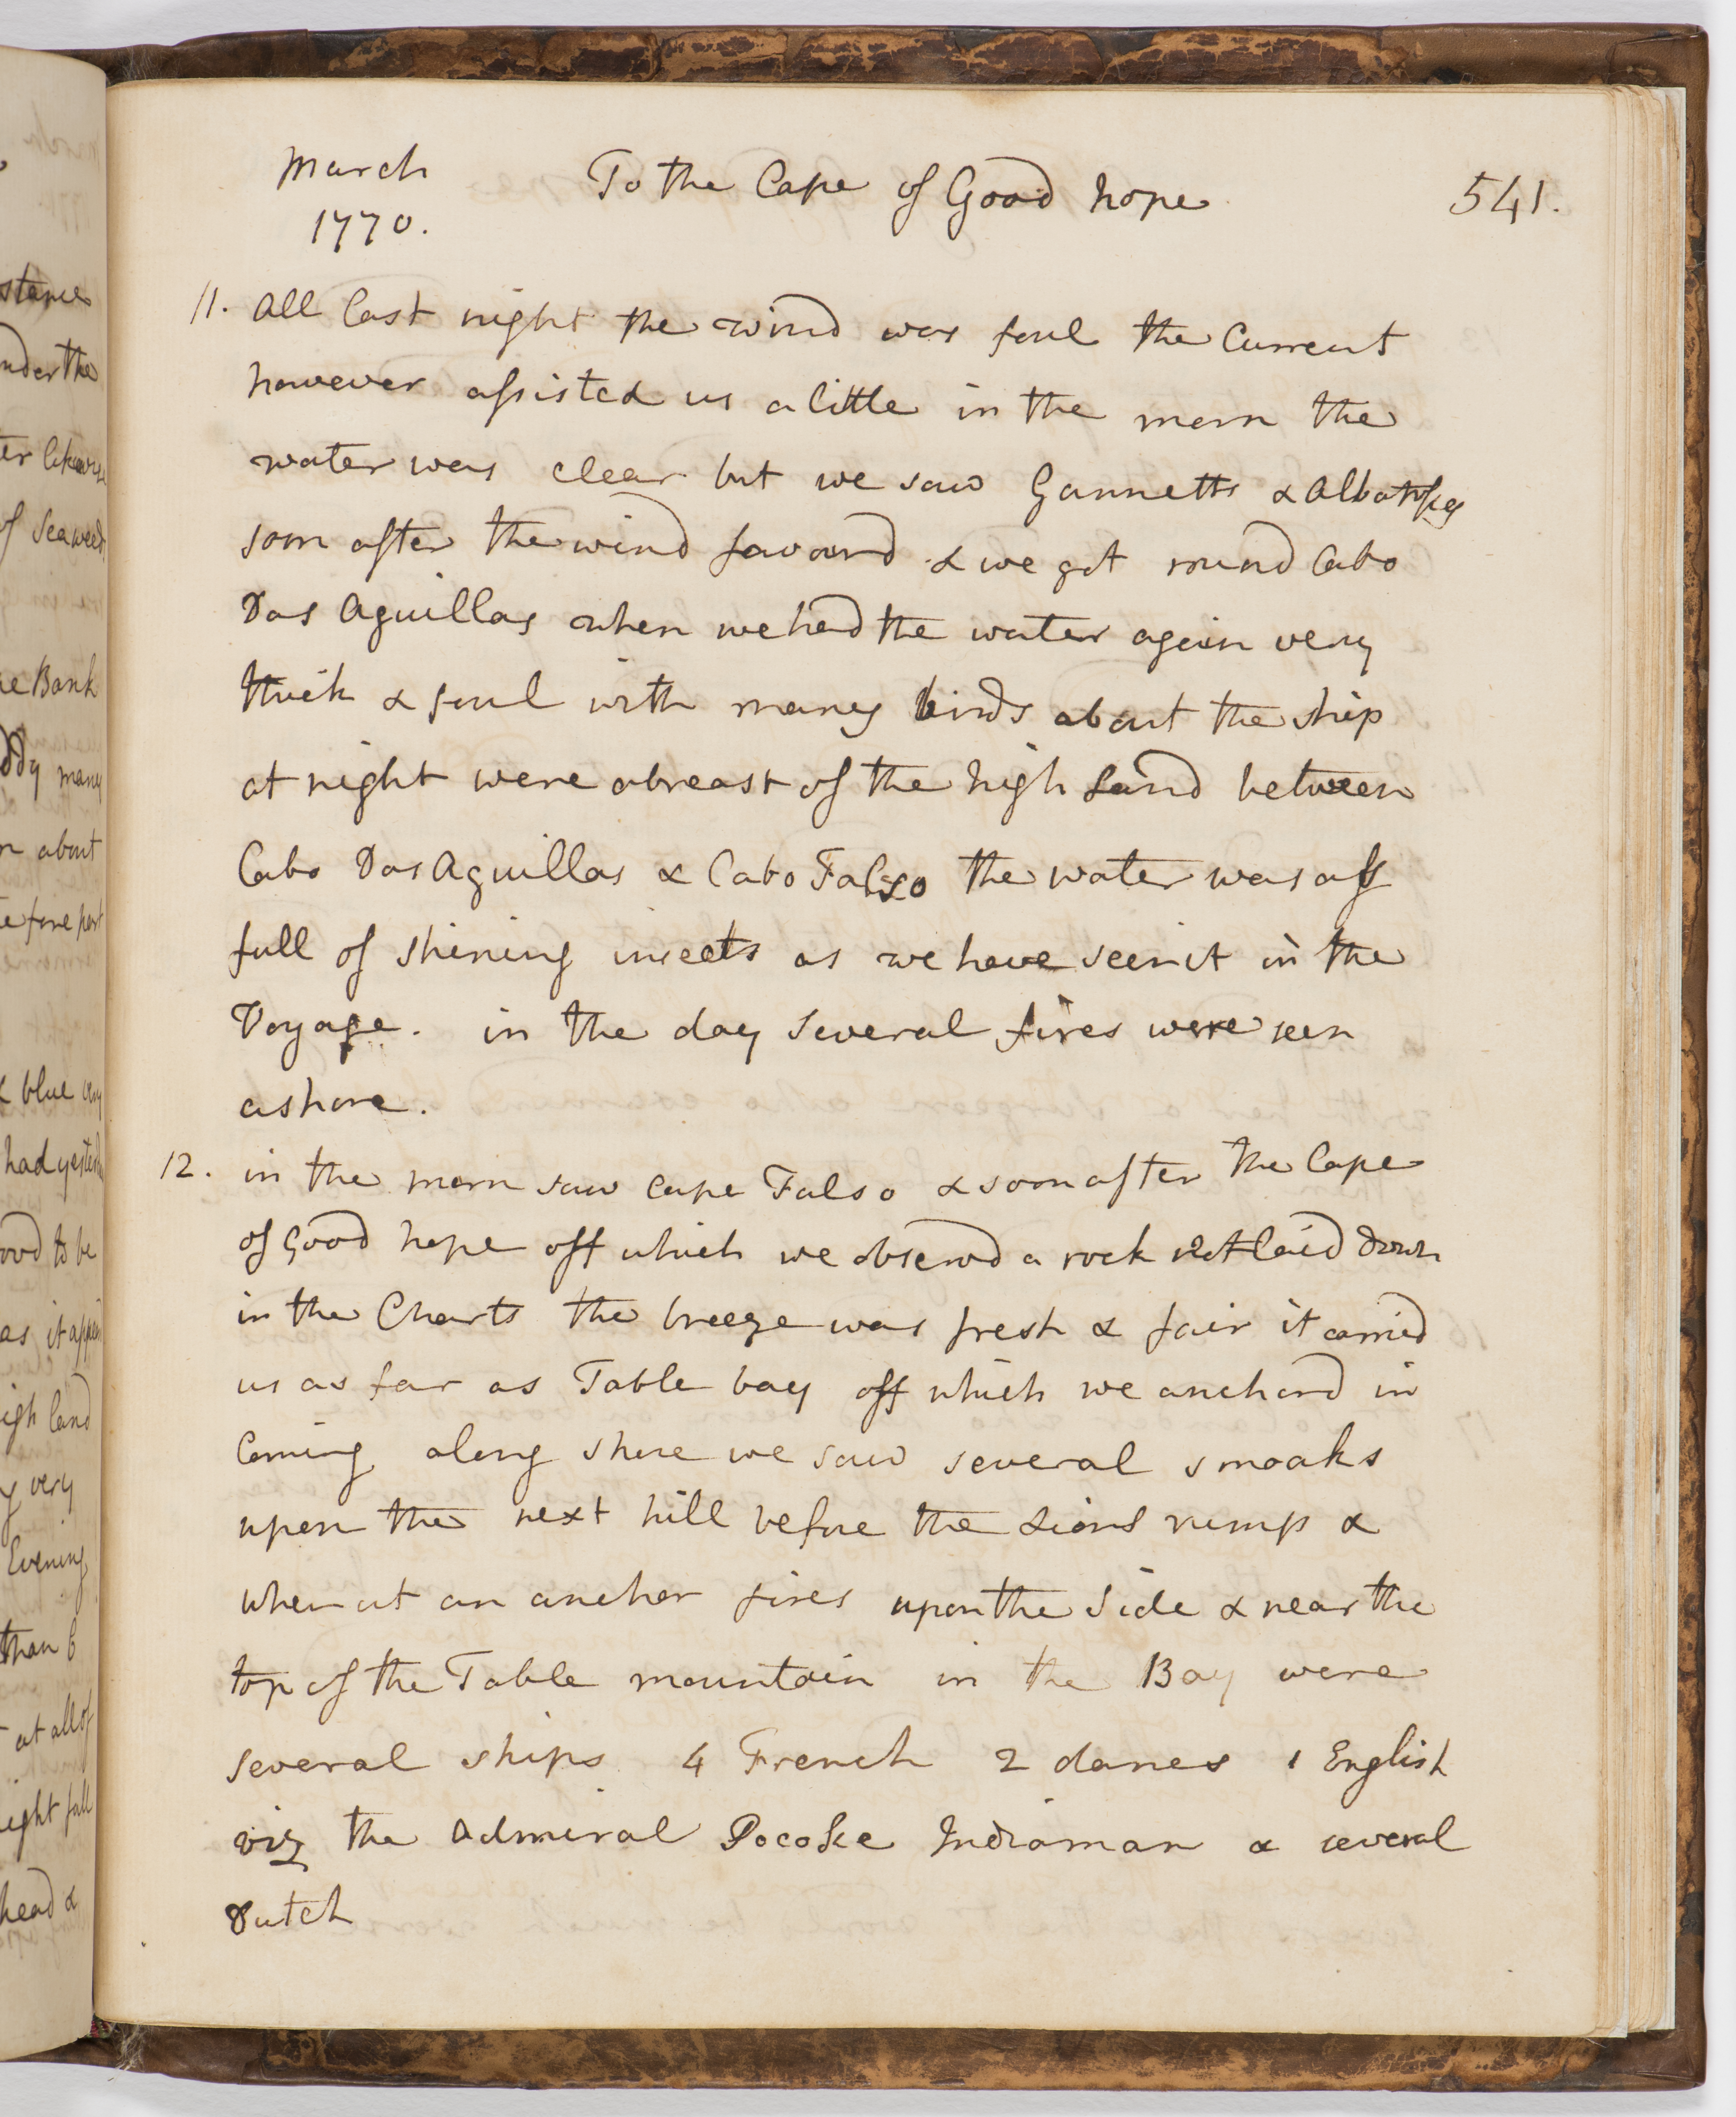 March
1770.
To the Cape of Good hope
541.
11. All last night the wind was foul the Current
however assisted us a little in the morn the
water was clear but we saw Gannetts & Albatrosses
soon after the wind favourd & we got round Cabo
Das Aguillas when we had the water again very
thick & foul with many birds about the ship
at night were abreast of the high Land between
Cabo Das Aguillas & Cabo Falso the water was as
full of shining insects as we have seen it in the
Voyage. in the day several fires were seen
ashore.
12. in the morn saw cape Falso & soon after the Cape
of Good hope off which we observd a rock not laid down
in the Charts the breeze was fresh & fair it carried
us as far as Table bay off which we anchord in
Coming along shore we saw several smoaks
upon the next hill before the Lions rump &
when at an anchor fires upon the side & near the
top of the Table mountain in the Bay were
several ships 4 French 2 danes 1 English
viz the Admiral Pocoke Indiaman & several
Dutch
stance
nder the
ter likewise
of Seaweed
he Bank
ddy many
n about
e fore part
& blue very
had yester
ood to be
as it appea
igh land
y very
Evening
than 6
at all of
ight fall
head &